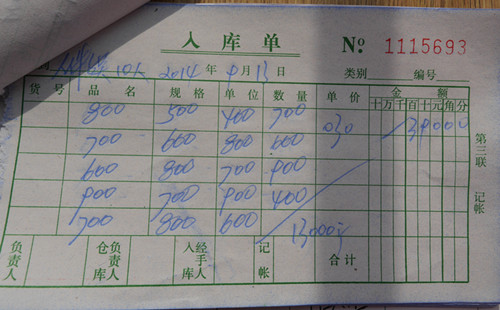 入库单 № 1115693
10人 2014年9月13日 类别 编号
货号 品名 规格 单位 数量 单价 金额
十万千百十元角分
800 500 400 700 030 39000
700 600 800 600
600 800 700 900
900 700 900 400
700 800 600 13000
负责人 仓库负责人 入库经手人 记帐 合计
第三联 记帐